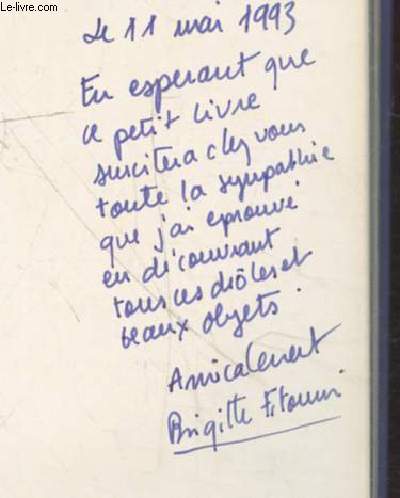 Le-livre.com
Le 11 mai 1993
En esperant que
ce petit livre
suscitera chez vous
toute la sympathie
que j'ai eprouvé
en découvrant
tous ces drôles et
beaux objets.
Amicalement
Brigitte Fitoussi